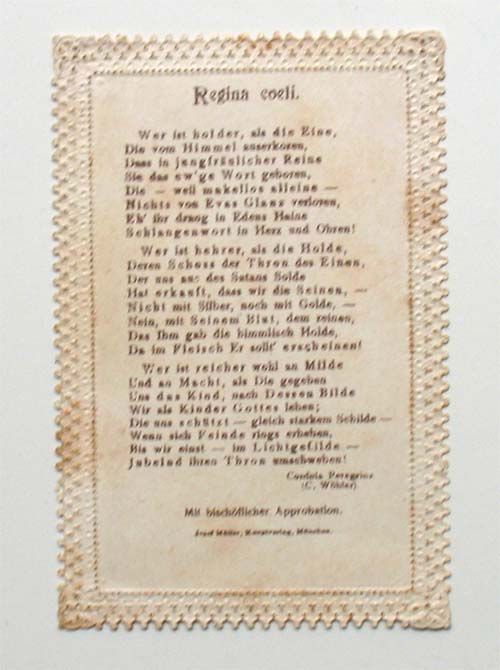 Regina coeli.
Wer ist holder, als die Eine,
Die vom Himmel auserkoren,
Dass in jungfräulicher Reine
Sie das ew'ge Wort geboren,
Die — weil makellos alleine —
Nichts von Evas Glanz verloren,
Eh' ihr drang in Edens Haine
Schlangenwort in Herz und Ohren!
Wer ist hehrer, als die Holde,
Deren Schoss der Thron des Einen,
Der uns aus des Satans Solde
Hat erkauft, dass wir die Seinen, —
Nicht mit Silber, noch mit Golde, —
Nein, mit Seinem Blut, dem reinen,
Das Ihm gab die himmlisch Holde,
Da im Fleisch Er sollt' erscheinen!
Wer ist reicher wohl an Milde
Und an Macht, als Die gegeben
Uns das Kind, nach Dessen Bilde
Wir als Kinder Gottes leben;
Die uns schützt — gleich starkem Schilde —
Wenn sich Feinde rings erheben,
Bis wir einst — im Lichtgefilde —
Jubelnd ihren Thron umschweben!
Cordula Peregrina
(C. Wöhler).
Mit bischöflicher Approbation.
Josef Müller, Kunstverlag, München.